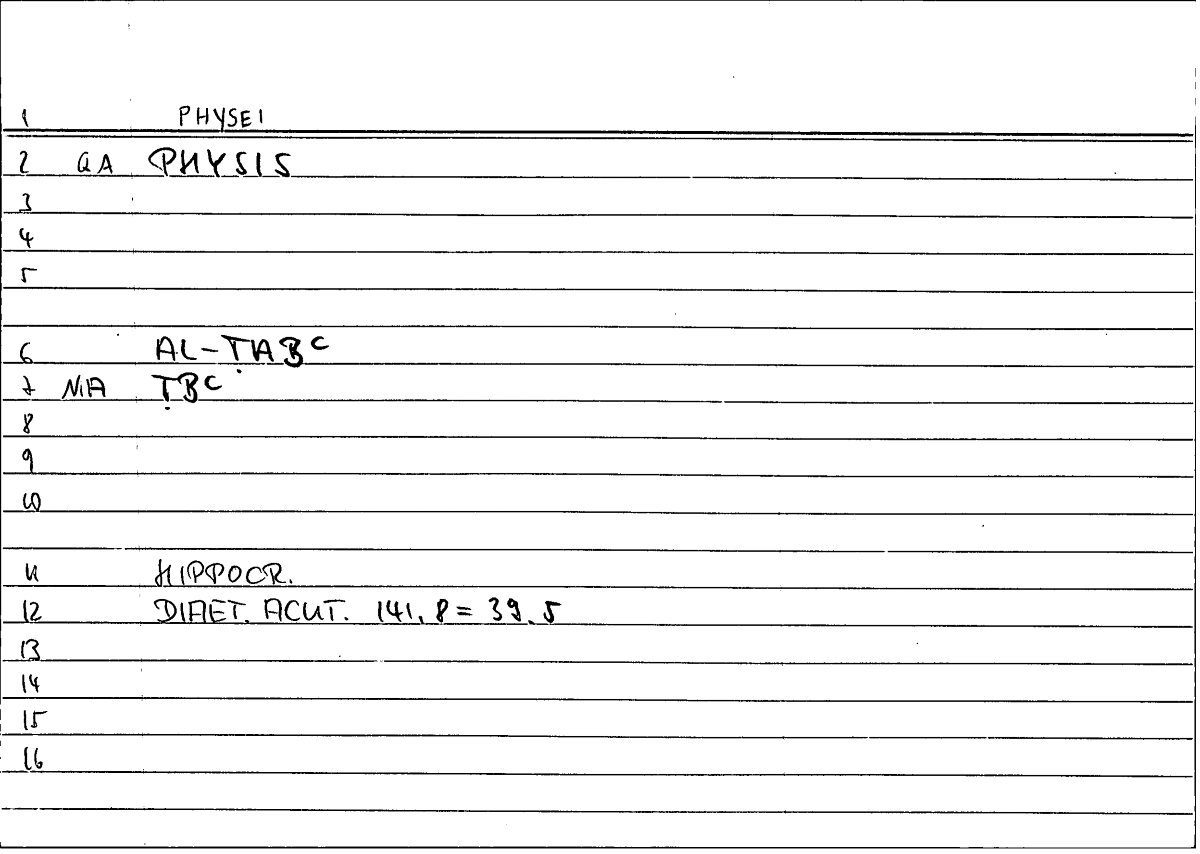 1 PHYSEI
2 QA PHYSIS
3
4
5
6 AL-ṬABC
7 NA ṬBC
8
9
10
11 HIPPOCR.
12 DIAET. ACUT. 141, 8 = 39, 5
13
14
15
16